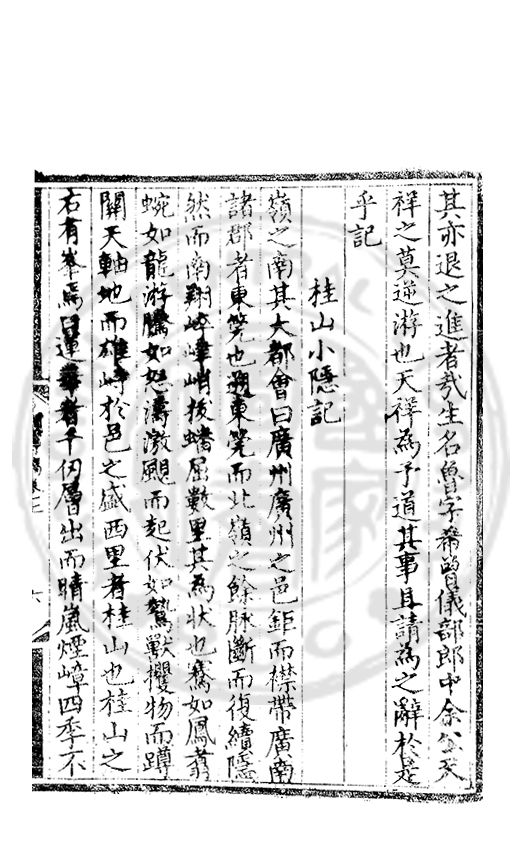 其亦退之進者哉生名魯字希曾儀部郎中余公天
祥之莫逆游也天祥為予道其事且請為之辭於是
乎記
桂山小隱記
嶺之南其大都會曰廣州廣州之邑鉅而襟帶廣南
諸郡者東筦也遡東筦而北嶺之餘脉斷而復續隱
然而南翔峙峰峭拔蟠屈數里其為狀也騫如鳳翥
蜿如龍游騰如怒濤激颶而起伏如鷙獸攫物而蹲
關天軸地而雄峙於邑之盛西里者桂山也桂山之
右有峯焉曰蓮華者千仞層出而晴嵐煙嶂四季不